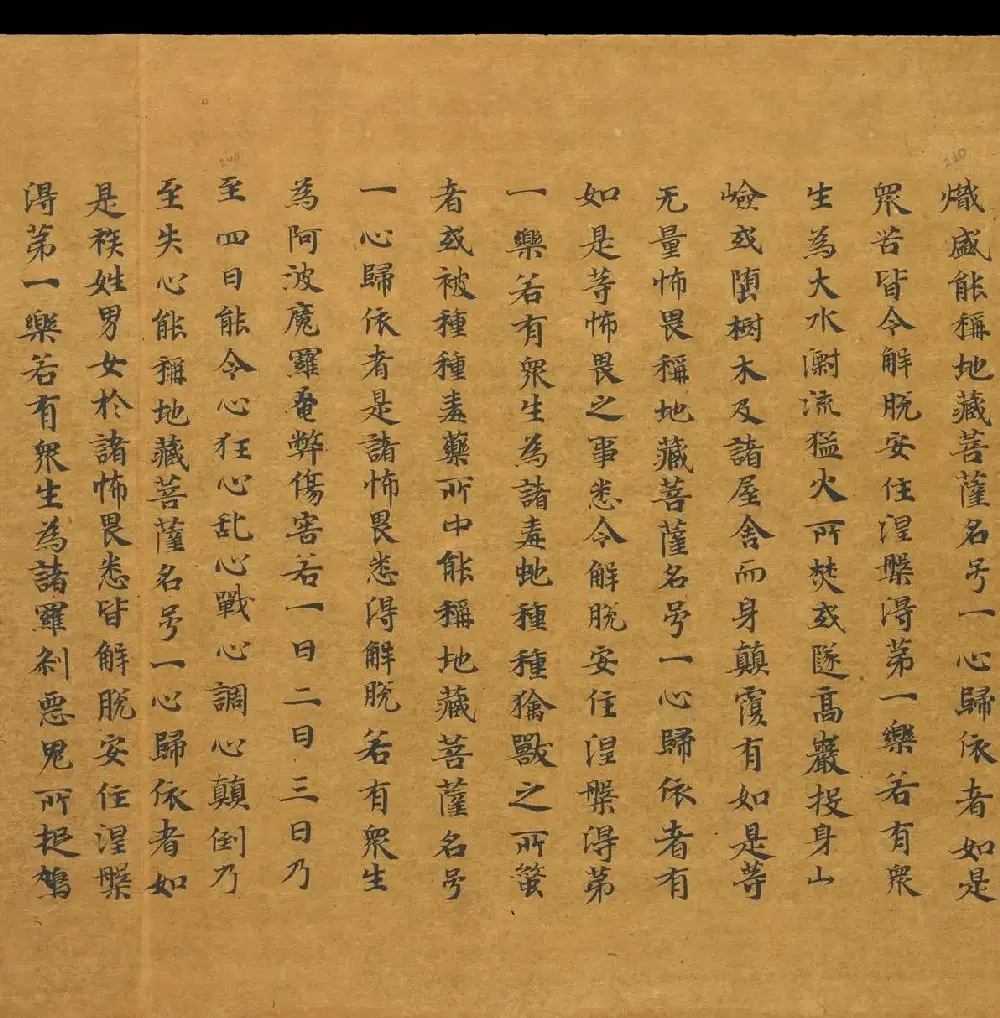 熾盛能稱地藏菩薩名号一心歸依者如是
衆苦皆令解脫安住涅槃得苐一樂若有衆
生為大水㵱流猛火所焚或墜高巖投身山
嶮或墮樹木及諸屋舍而身顛覆有如是等
无量怖畏稱地藏菩薩名号一心歸依者有
如是等怖畏之事悉令解脫安住涅槃得苐
一樂若有衆生為諸毒虵種種擒獸之所螫
者或被種種毒藥所中能稱地藏菩薩名号
一心歸依者是諸怖畏悉得解脫若有衆生
為阿波魔羅奄弊傷害若一日二日三日乃
至四日能令心狂心乱心戰心調心顛倒乃
至失心能稱地藏菩薩名号一心歸依者如
是族姓男女於諸怖畏悉皆解脫安住涅槃
得苐一樂若有衆生為諸羅剎惡鬼所捉
240
240